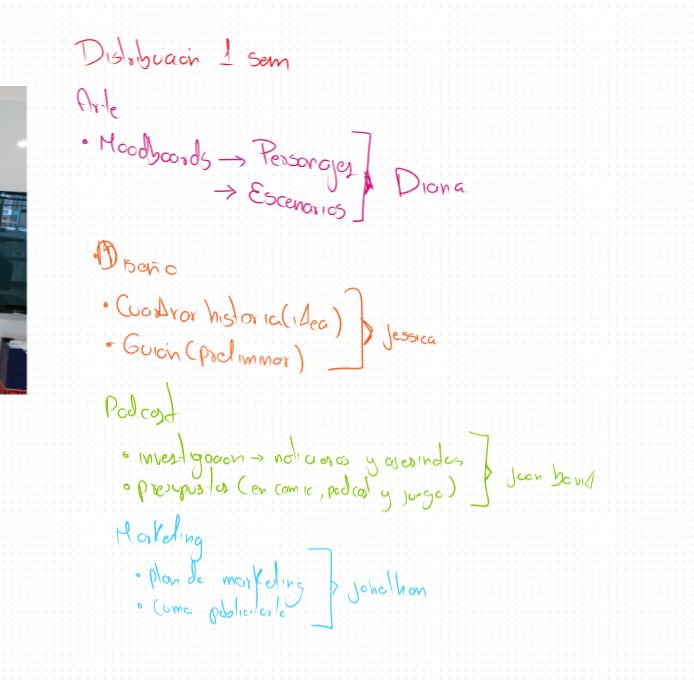 Distribuación 1 sem
Arte
• Moodboards → Personajes
→ Escenarios
Diana
Diseño
• Cuadrar historia (idea)
• Guión (preliminar)
Jessica
Podcast
• investigacion → noticieros y asesinatos
• presupuestos (en comic, podcast y juego)
Juan David
Marketing
• plan de marketing
• como publicitarlo
Jonathan